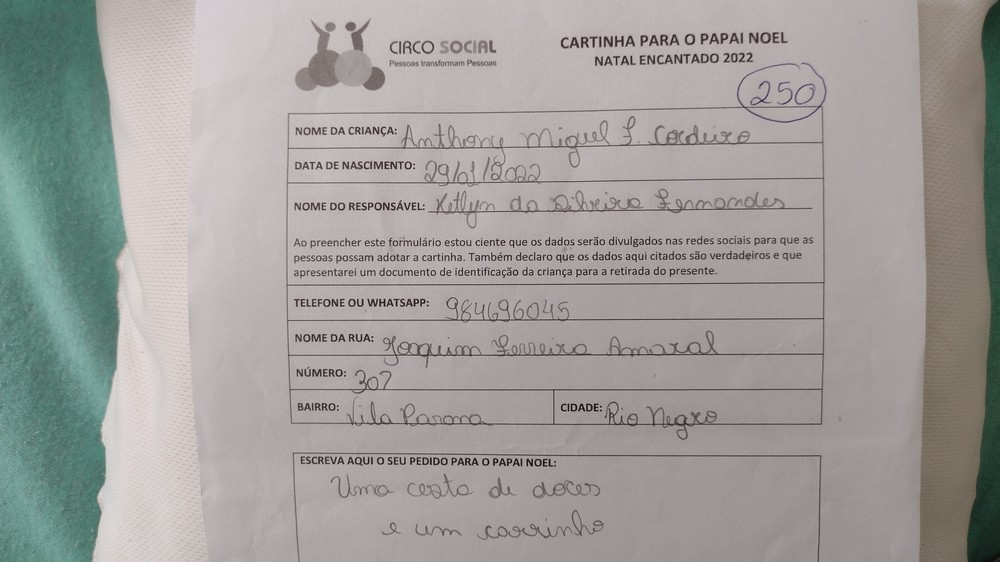 CIRCO SOCIAL
Pessoas transformam Pessoas
CARTINHA PARA O PAPAI NOEL
NATAL ENCANTADO 2022
250
NOME DA CRIANÇA: Anthony Miguel F. Cordeiro
DATA DE NASCIMENTO: 29/01/2022
NOME DO RESPONSÁVEL: Ketlyn da Silveira Fernandes
Ao preencher este formulário estou ciente que os dados serão divulgados nas redes sociais para que as
pessoas possam adotar a cartinha. Também declaro que os dados aqui citados são verdadeiros e que
apresentarei um documento de identificação da criança para a retirada do presente.
TELEFONE OU WHATSAPP: 984696045
NOME DA RUA: Joaquim Ferreira Amaral
NÚMERO: 307
BAIRRO: Vila Parana CIDADE: Rio Negro
ESCREVA AQUI O SEU PEDIDO PARA O PAPAI NOEL:
Uma cesta de doces
e um carrinho